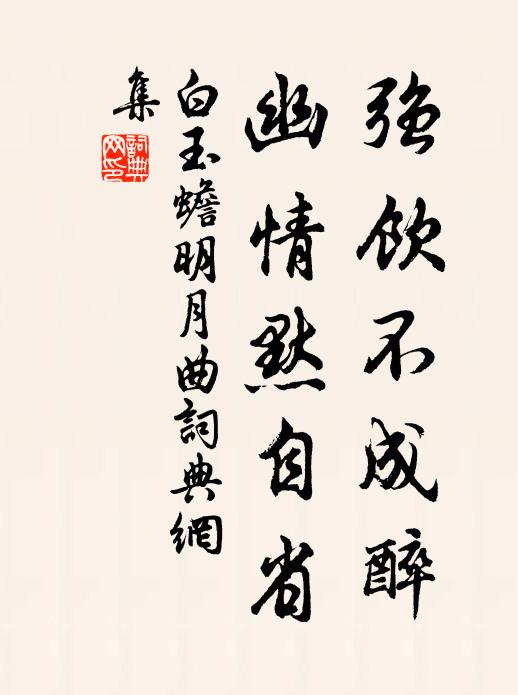 強飲不成醉
幽情默自省
白玉蟾明月曲詞典網
集
詞典網印